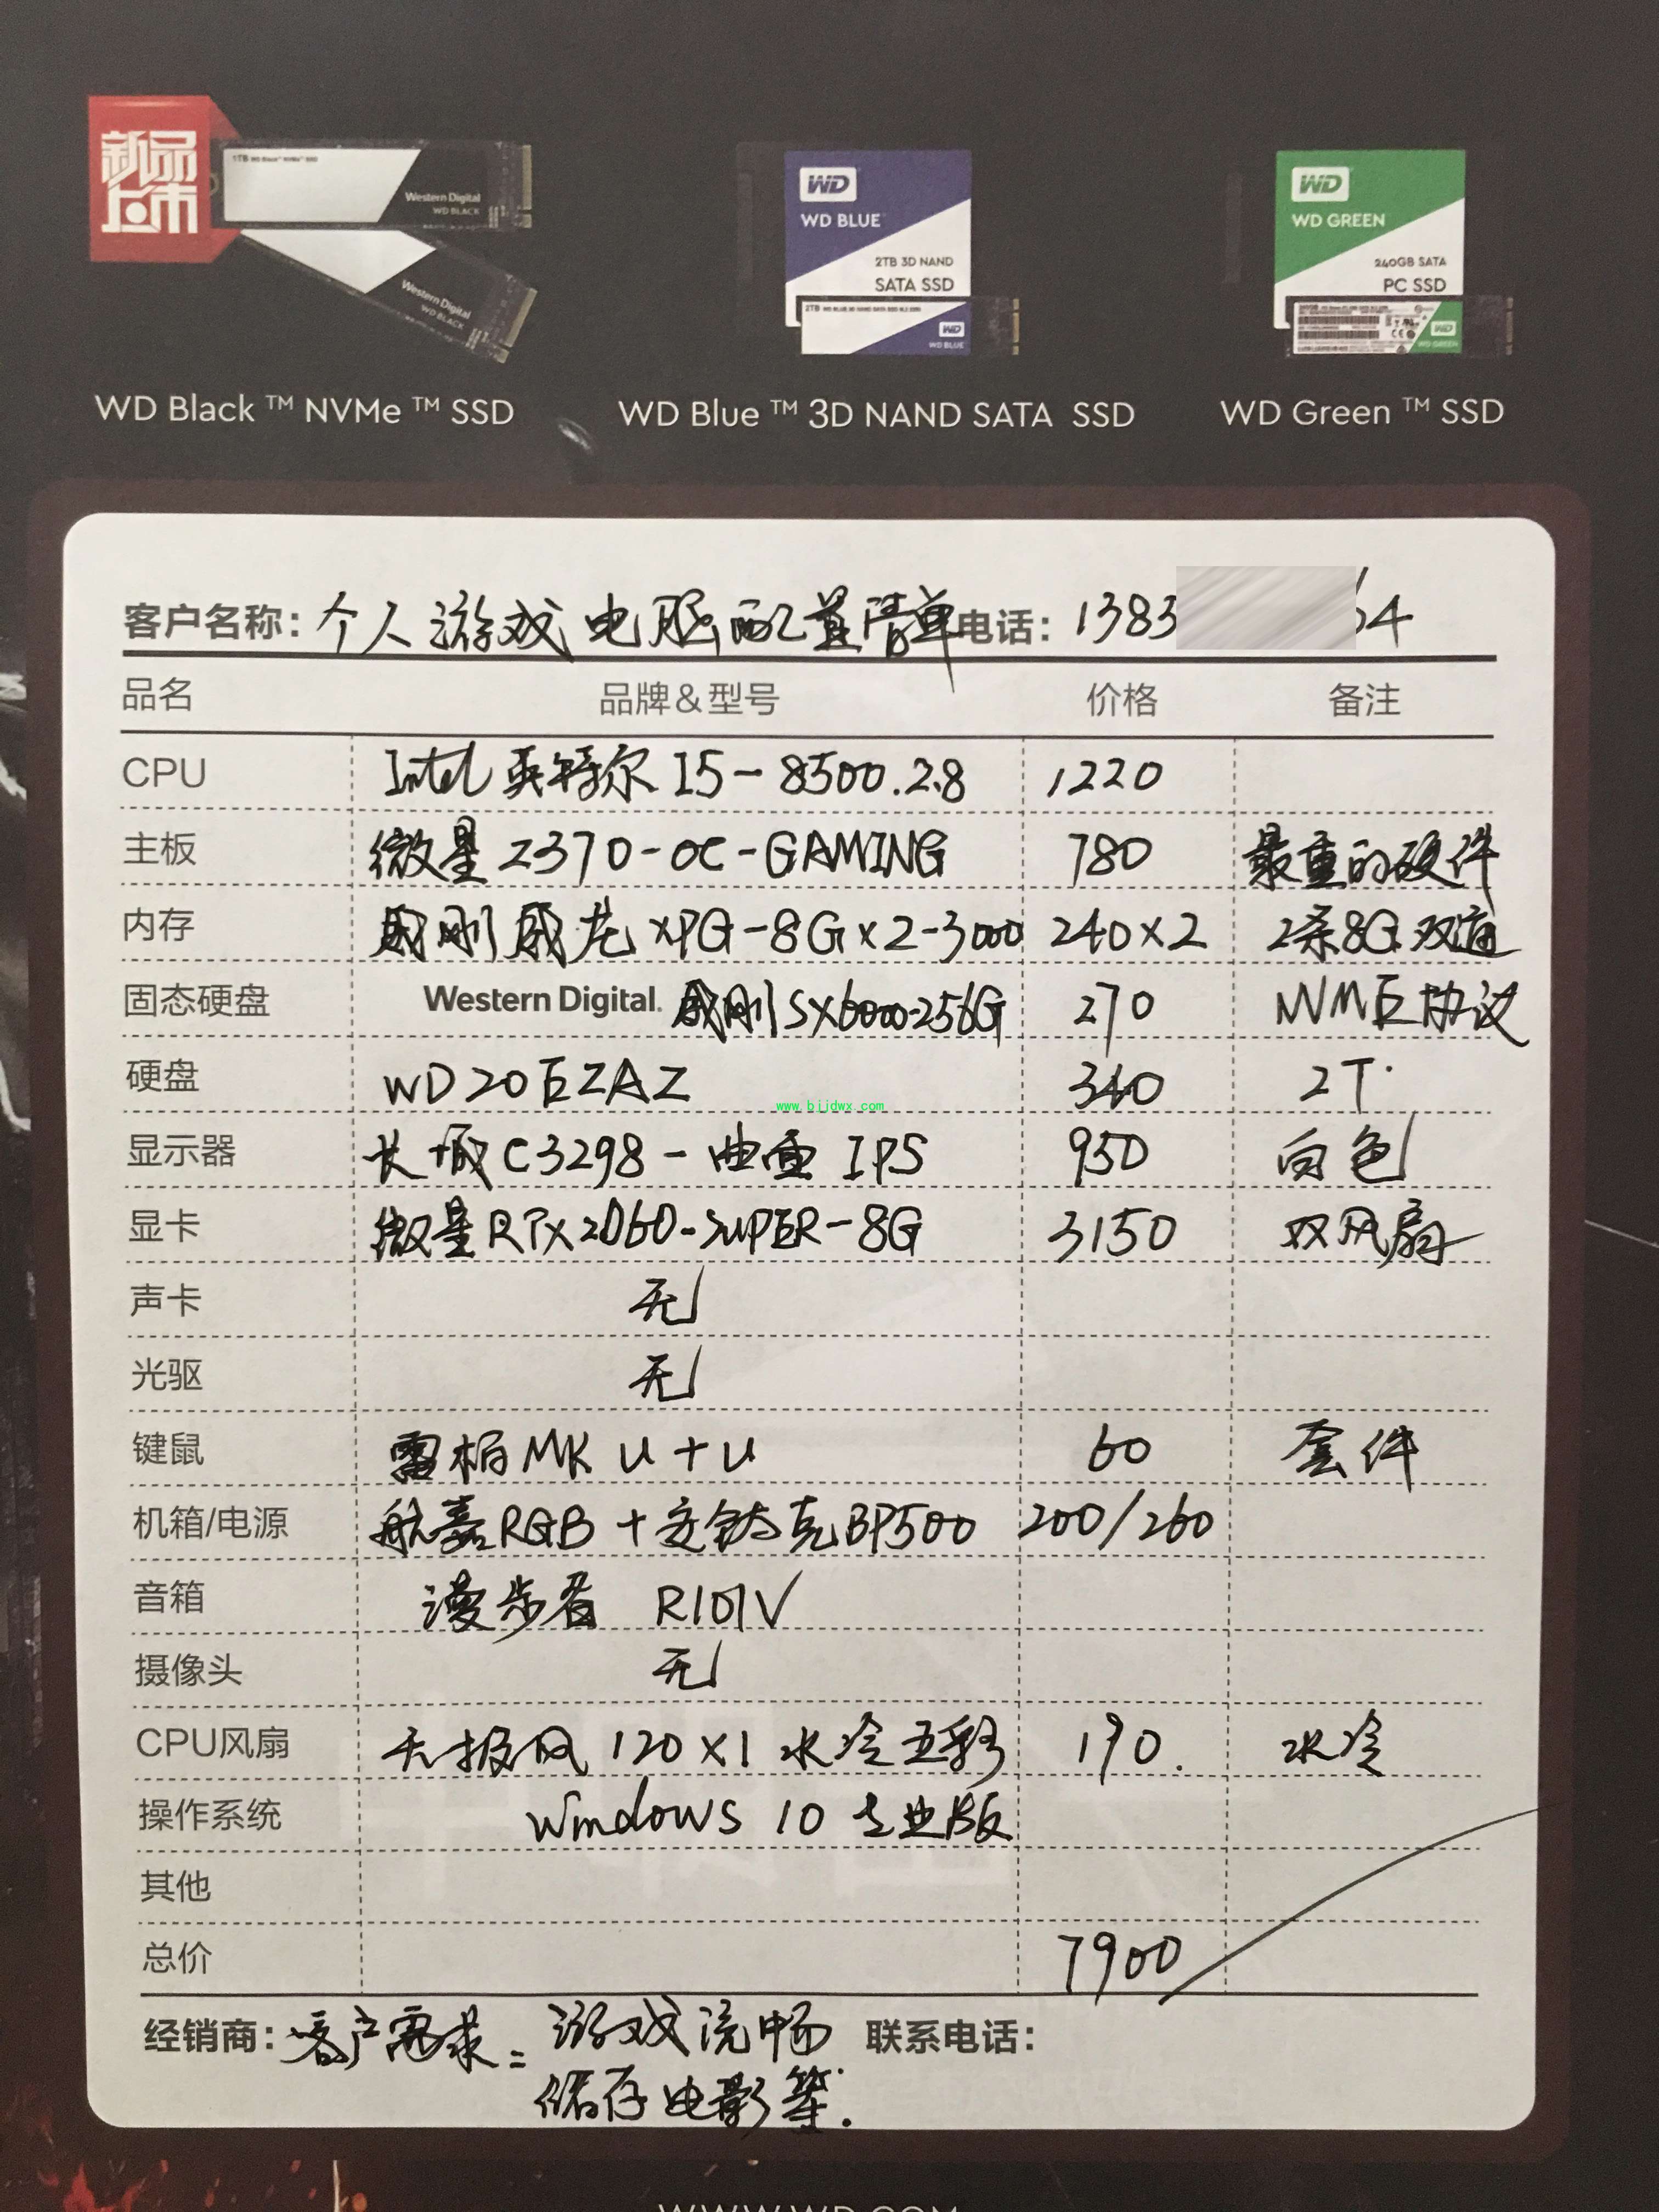 新品上市
1TB WD Black™ NVMe™ SSD
Western Digital
WD BLACK
Western Digital
WD BLACK
WD
WD BLUE
2TB 3D NAND
SATA SSD
2TB WD BLUE 3D NAND SATA SSD
WD
WD BLUE
WD
WD GREEN
240GB SATA
PC SSD
WD
WD GREEN
WD Black™ NVMe™ SSD WD Blue™ 3D NAND SATA SSD WD Green™ SSD
客户名称: 个人游戏电脑配置清单 电话: 1383 64
品名 品牌&型号 价格 备注
CPU Intel 英特尔 I5-8500.2.8 1220
主板 微星Z370-OC-GAMING 780 最重的硬件
内存 威刚威龙XPG-8G×2-3000 240×2 2条8G双通
固态硬盘 Western Digital. 威刚SX6000-256G 270 NVME协议
硬盘 WD20EZAZ 340 2T.
www.bjjdwx.com
显示器 长城C3298-曲面 IPS 950 白色
显卡 微星RTX2060-SUPER-8G 3150 双风扇
声卡 无
光驱 无
键鼠 雷柏MK U+U 60 套件
机箱/电源 航嘉RGB+安钛克BP500 200/260
音箱 漫步者 R101V
摄像头 无
CPU风扇 天极风 120×1 水冷五彩 190. 水冷
操作系统 Windows 10 专业版
其他
总价 7900
经销商: 客户需求: 游戏流畅 联系电话:
储存电影等.
WWW.WD.COM